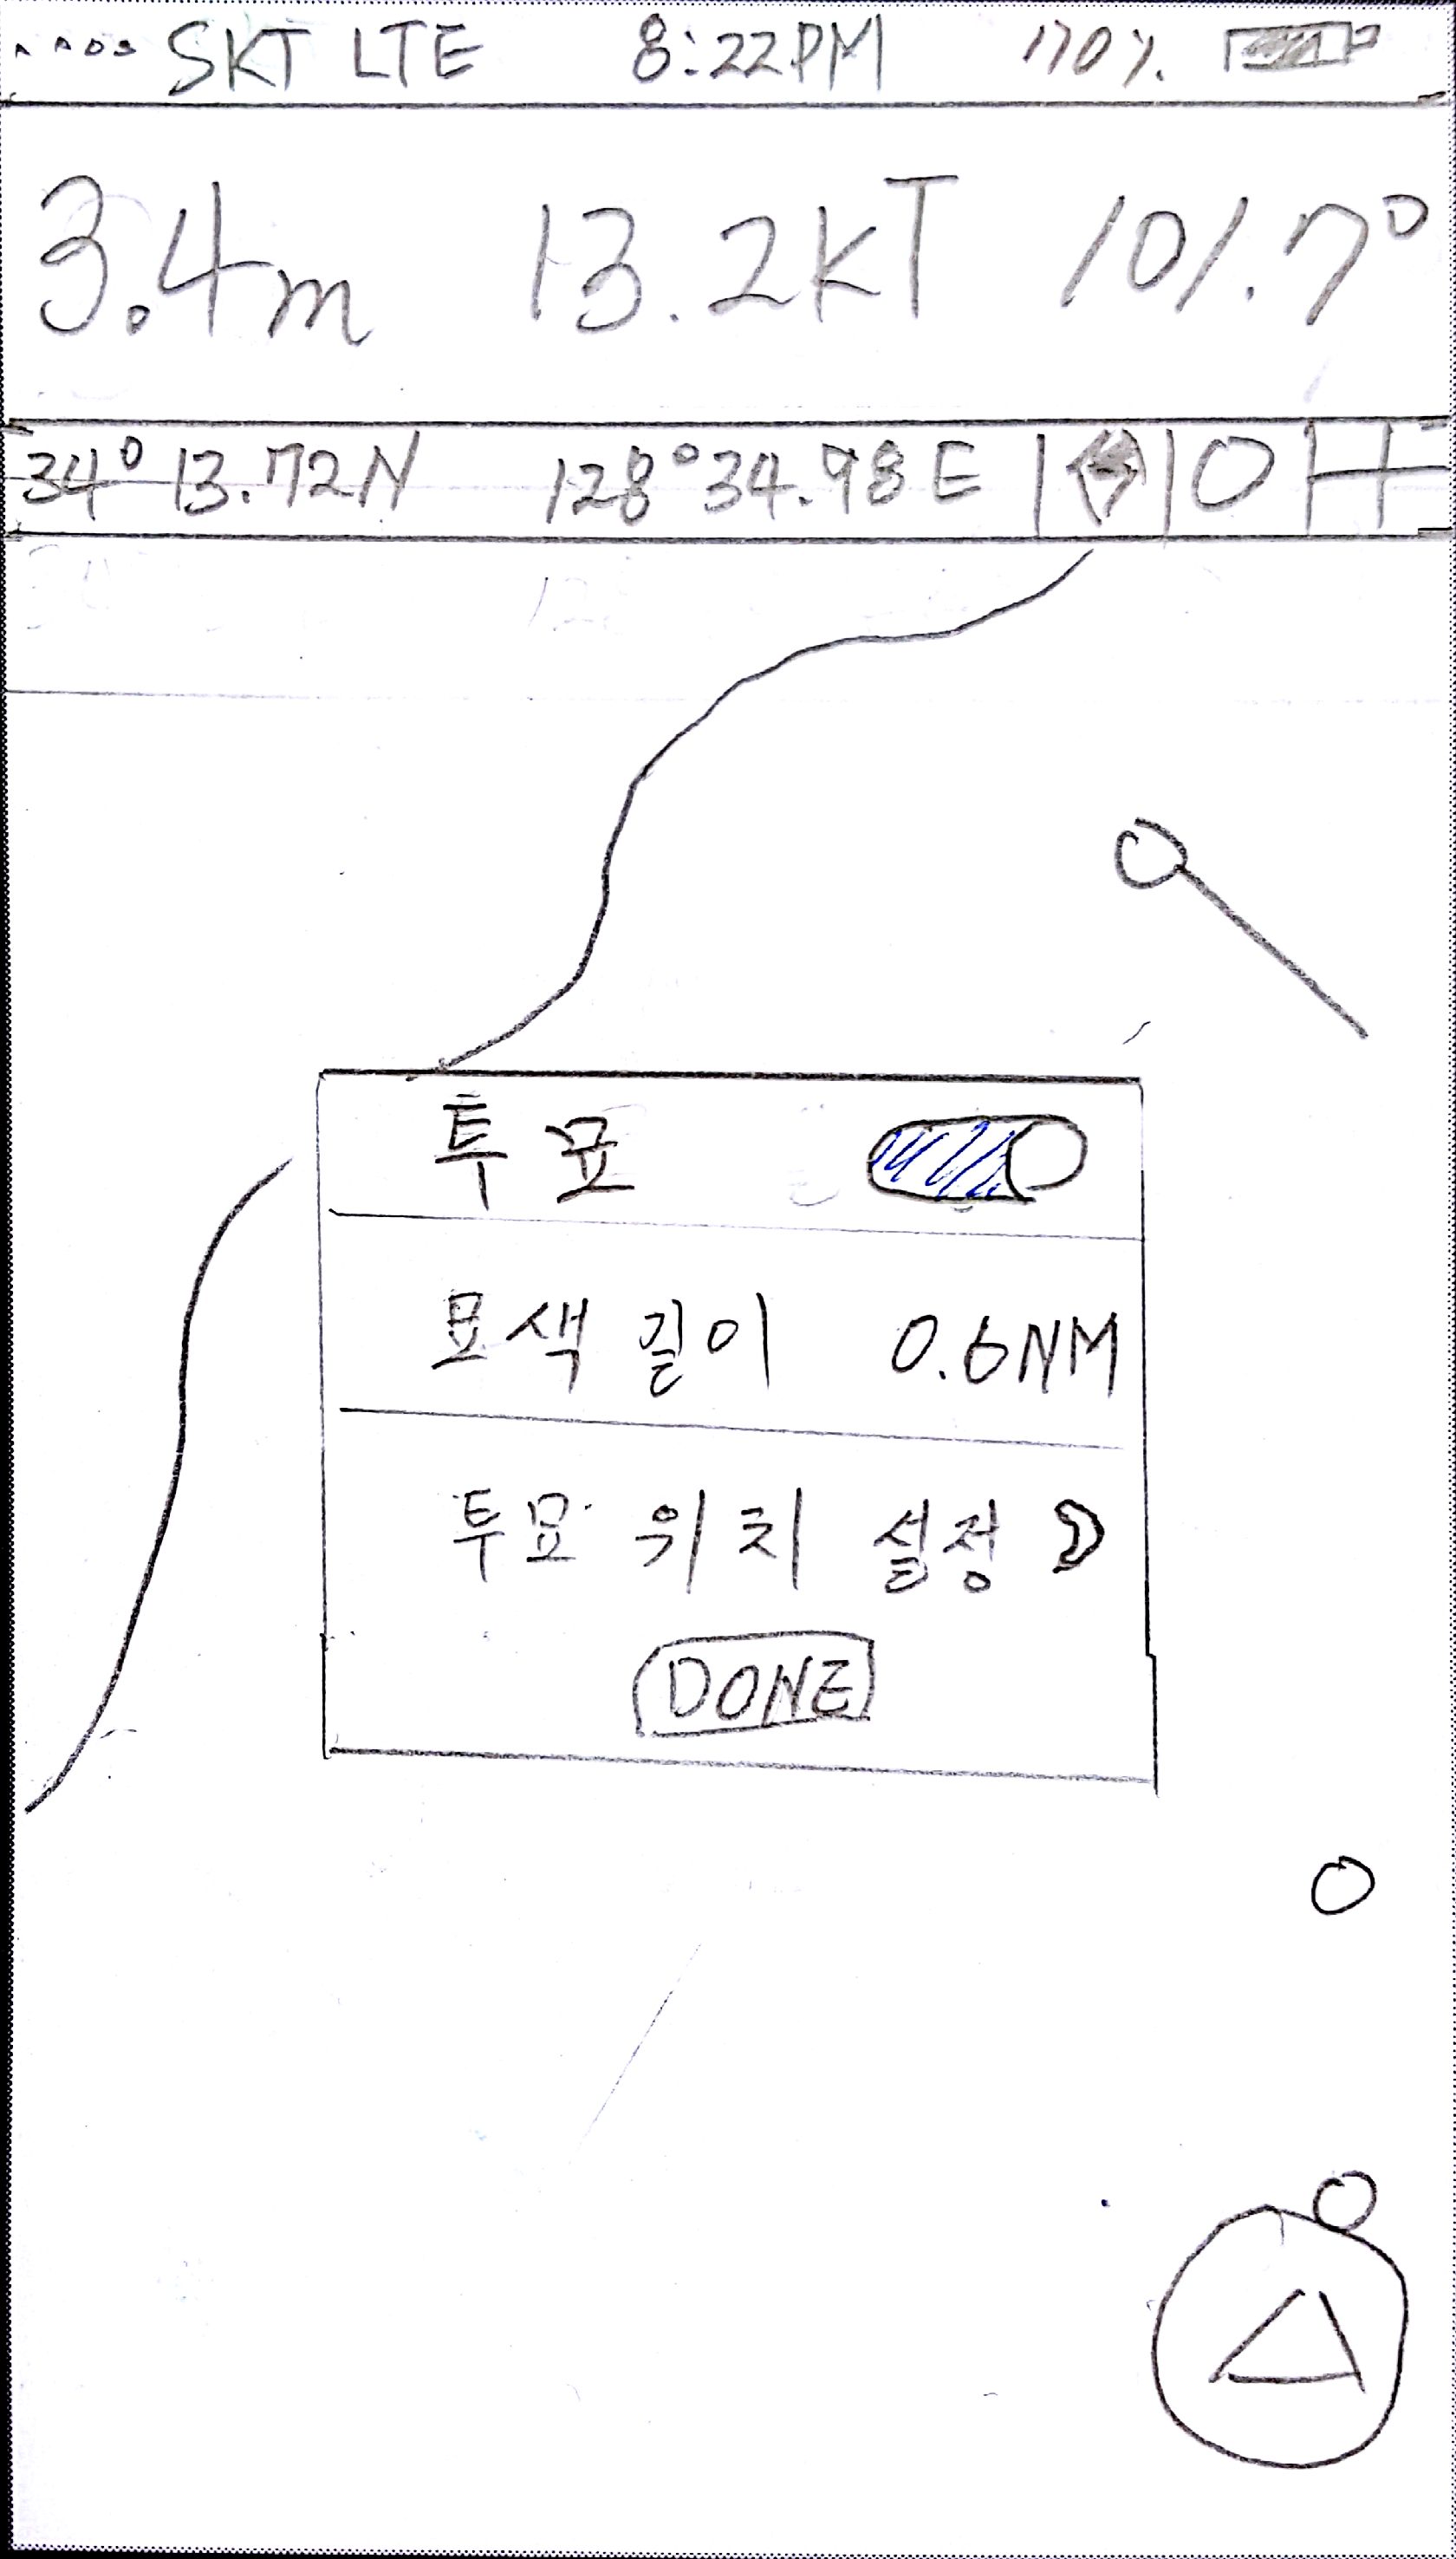 SKT LTE 8:22PM 70%
3.4m 13.2kT 101.7°
34° 13.72N 128° 34.98E
투묘
묘색 길이 0.6NM
투묘 위치 설정
DONE